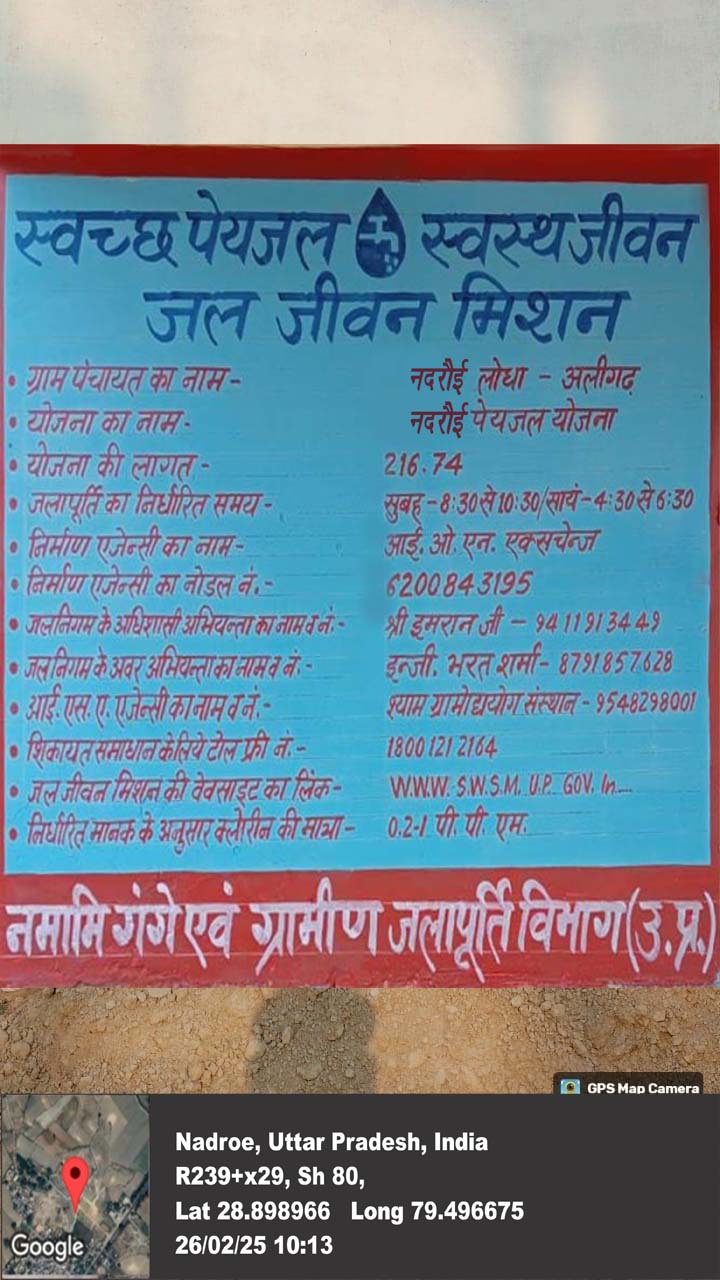 स्वच्छ पेयजल स्वस्थ जीवन
जल जीवन मिशन
• ग्राम पंचायत का नाम - नदरौई लोधा - अलीगढ़
• योजना का नाम - नदरौई पेयजल योजना
• योजना की लागत - 216.74
• जलापूर्ति का निर्धारित समय - सुबह - 8:30 से 10:30/सायं - 4:30 से 6:30
• निर्माण एजेन्सी का नाम - आई. ओ. एन. एक्सचेन्ज
• निर्माण एजेन्सी का नोडल नं. - 6200843195
• जलनिगम के अधिशासी अभियन्ता का नाम व नं. - श्री इमरान जी - 9411913449
• जलनिगम के अवर अभियन्ता का नाम व नं. - इन्जी. भरत शर्मा - 8791857628
• आई. एस. ए. एजेन्सी का नाम व नं. - श्याम ग्रामोद्ययोग संस्थान - 9548298001
• शिकायत समाधान के लिये टोल फ्री नं. - 1800 121 2164
• जल जीवन मिशन की वेवसाइट का लिंक - W.W.W. S.W.S.M. U.P. GOV. In....
• निर्धारित मानक के अनुसार क्लोरीन की मात्रा - 0.2-1 पी. पी. एम.
नमामि गंगे एवं ग्रामीण जलापूर्ति विभाग (उ.प्र.)
GPS Map Camera
Nadroe, Uttar Pradesh, India
R239+x29, Sh 80,
Lat 28.898966 Long 79.496675
26/02/25 10:13
Google